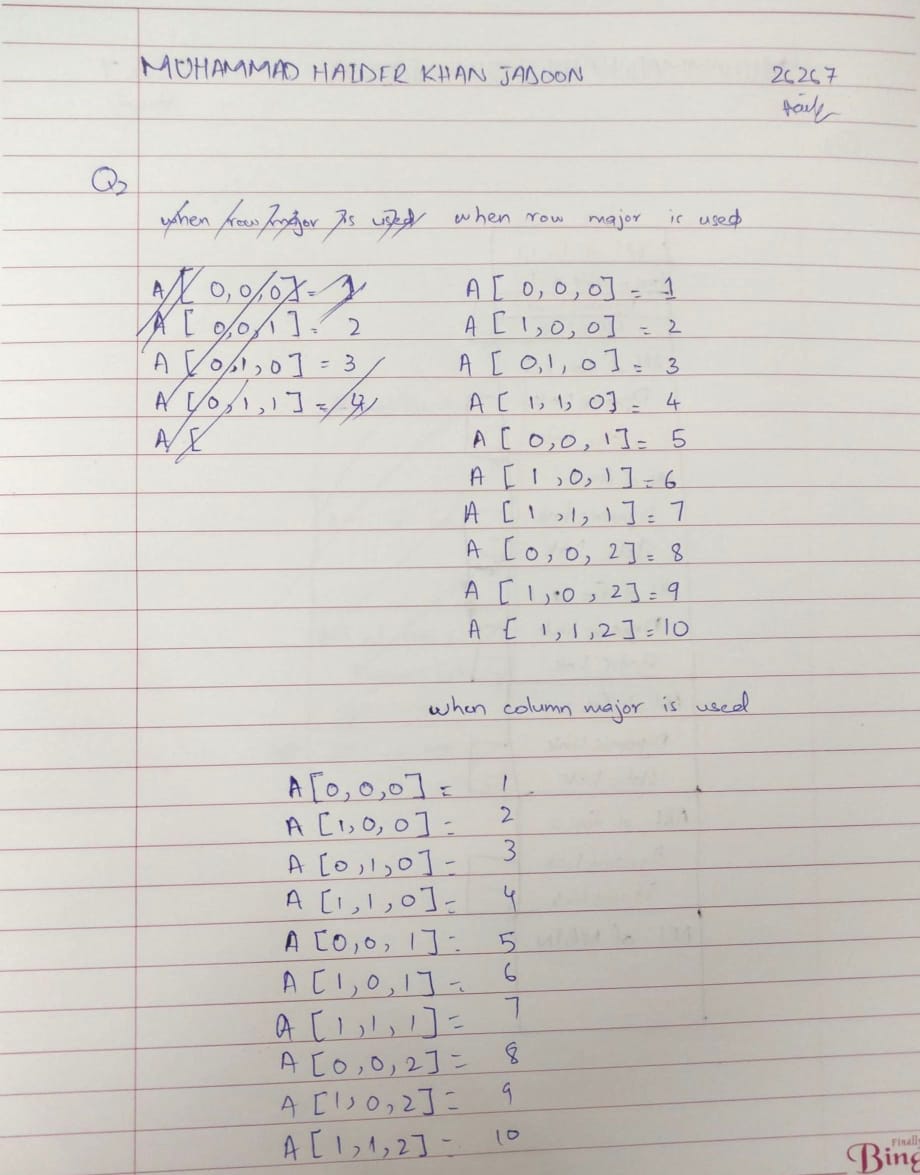 MUHAMMAD HAIDER KHAN JADOON 26267
Q2
when row major is used when row major is used
A[0,0,0]=1 A[0,0,0]=1
A[0,0,1]=2 A[1,0,0]=2
A[0,1,0]=3 A[0,1,0]=3
A[0,1,1]=4 A[1,1,0]=4
A[ A[0,0,1]=5
A[1,0,1]=6
A[1,1,1]=7
A[0,0,2]=8
A[1,0,2]=9
A[1,1,2]=10
when column major is used
A[0,0,0]= 1
A[1,0,0]= 2
A[0,1,0]= 3
A[1,1,0]= 4
A[0,0,1]= 5
A[1,0,1]= 6
A[1,1,1]= 7
A[0,0,2]= 8
A[1,0,2]= 9
A[1,1,2]= 10
Finally